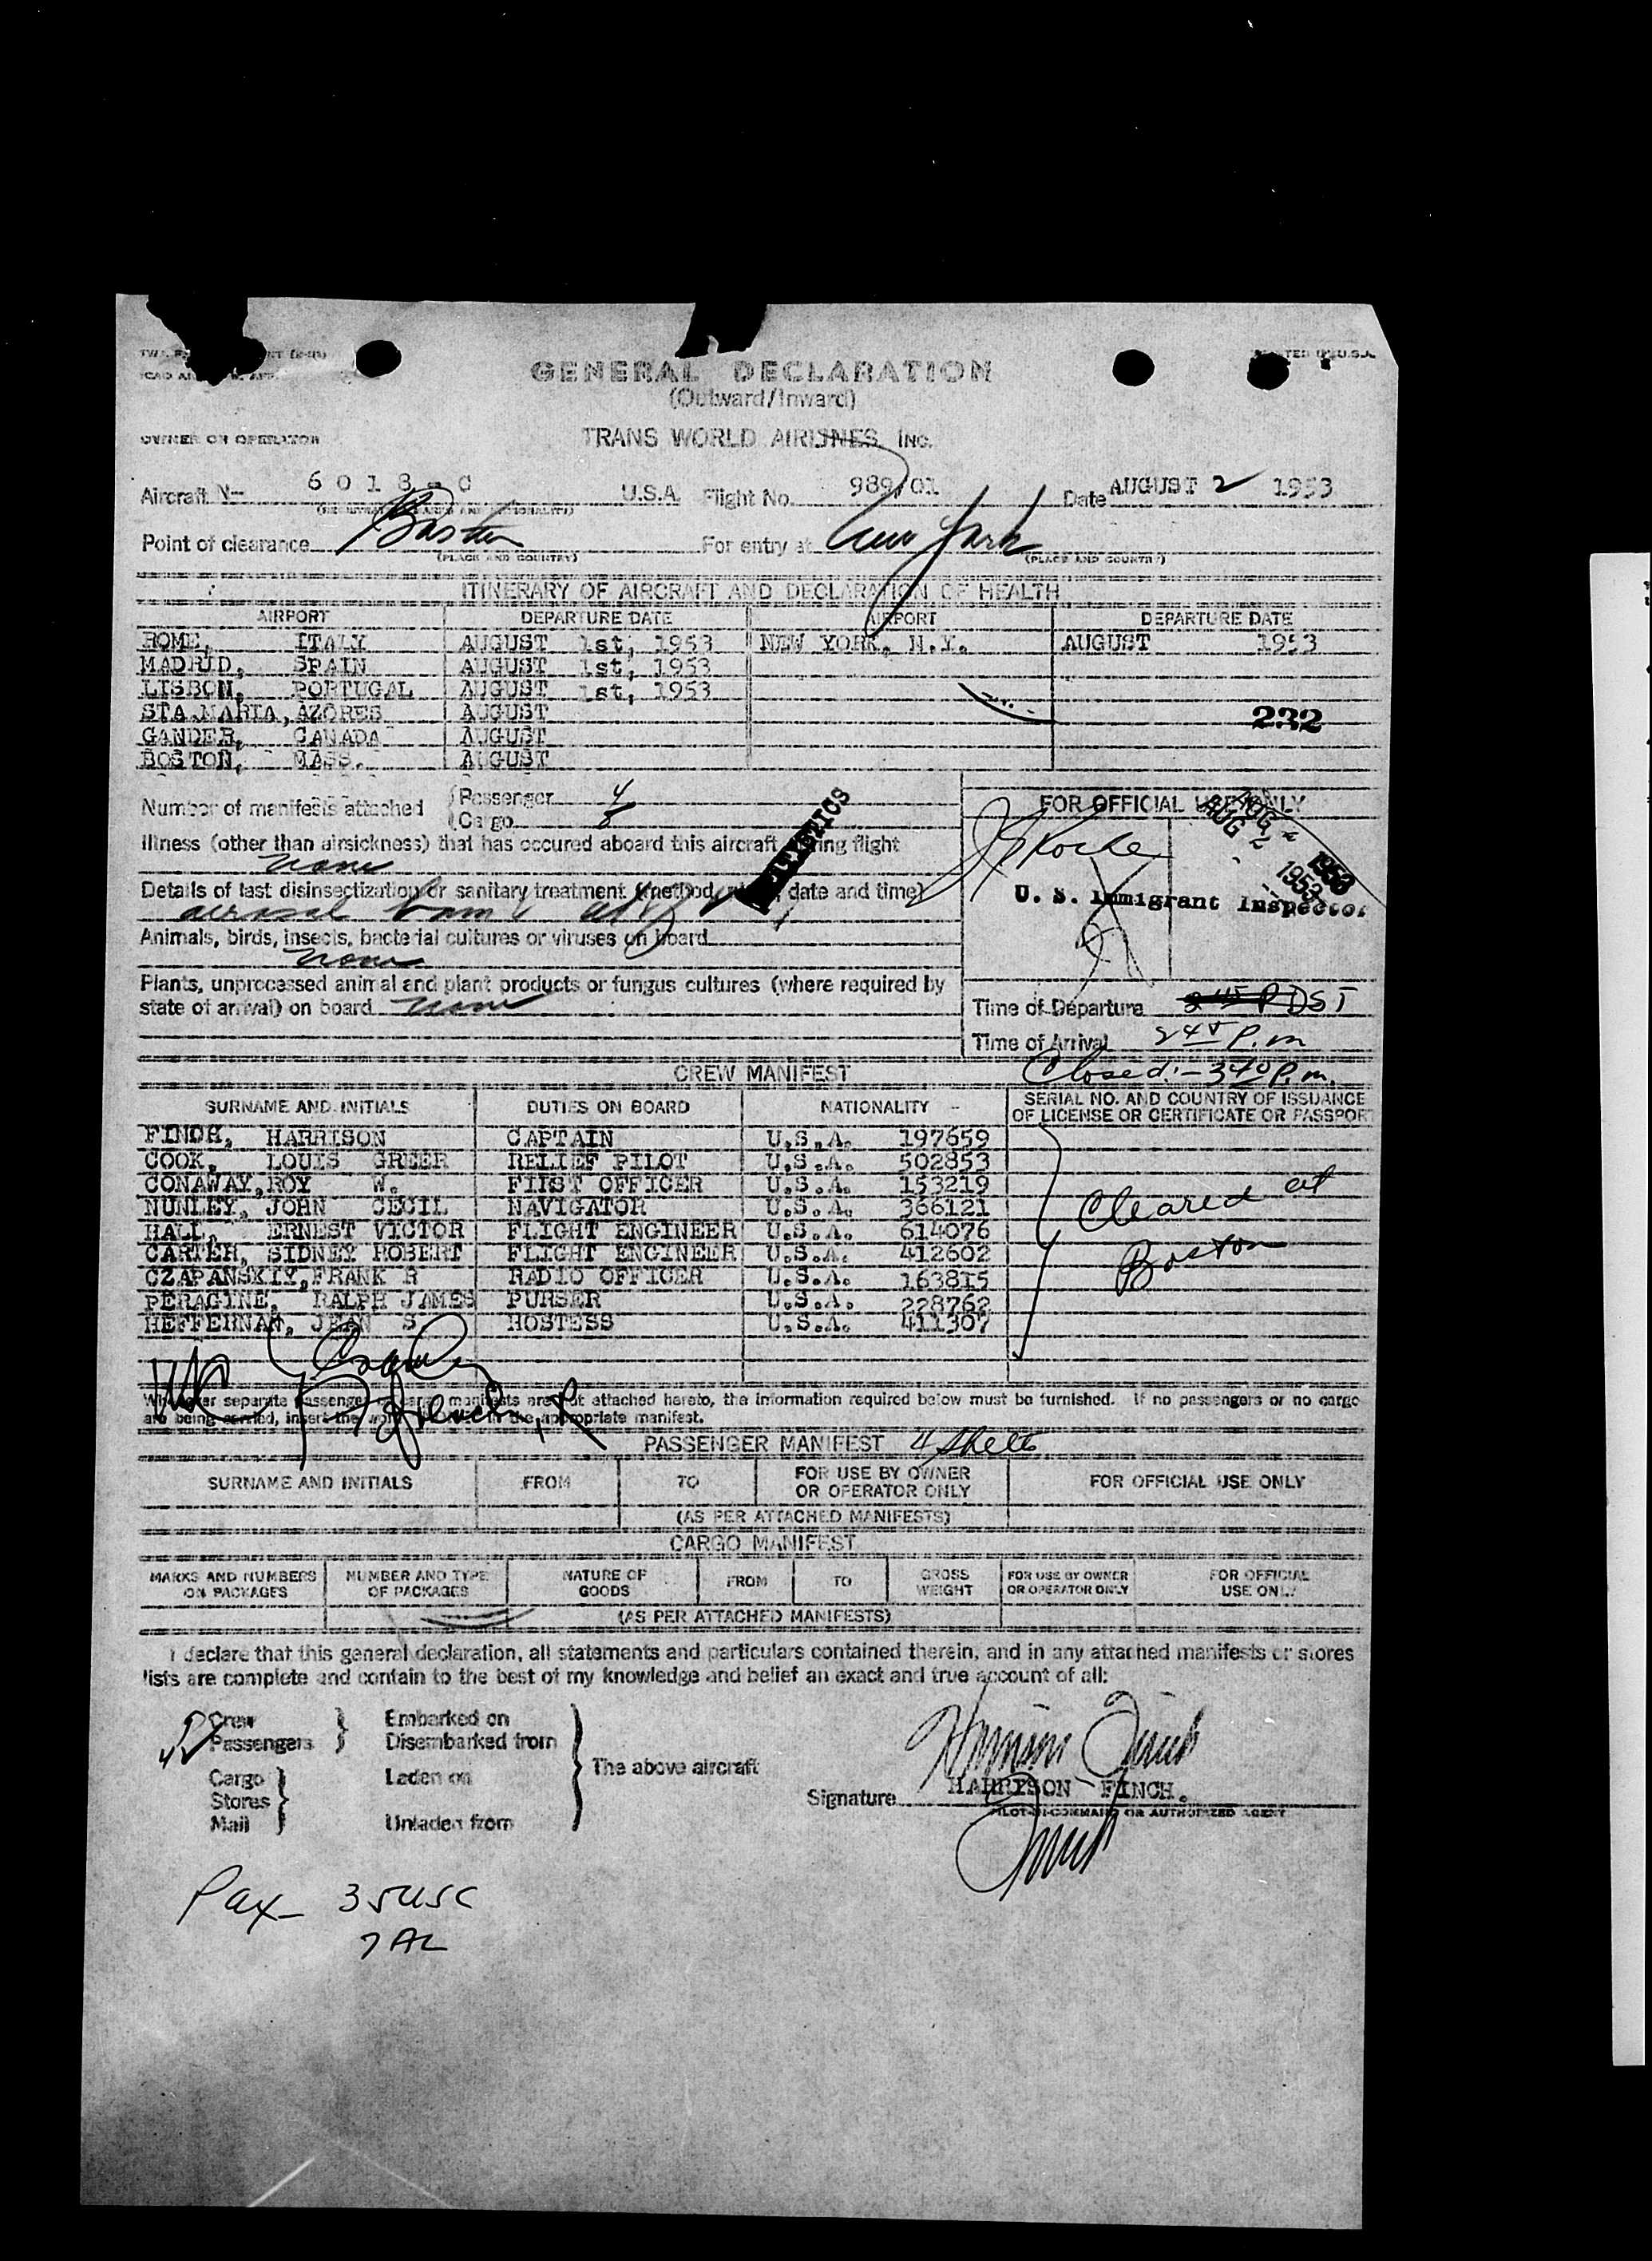 GENERAL DECLARATION
(Outward/Inward)
OWNER OR OPERATOR TRANS WORLD AIRLINES, INC.
Aircraft N- 6018-C U.S.A. Flight No. 989/01 Date AUGUST 2 1953
Point of clearance Boston For entry at New York
(PLACE AND COUNTRY) (PLACE AND COUNTRY)
ITINERARY OF AIRCRAFT AND DECLARATION OF HEALTH
AIRPORT DEPARTURE DATE AIRPORT DEPARTURE DATE
ROME, ITALY AUGUST 1st, 1953 NEW YORK, N.Y. AUGUST 1953
MADRID, SPAIN AUGUST 1st, 1953
LISBON, PORTUGAL AUGUST 1st, 1953
STA.MARIA, AZORES AUGUST 232
GANDER, CANADA AUGUST
BOSTON, MASS. AUGUST
Number of manifests attached
Passenger 4
Cargo
FOR OFFICIAL USE ONLY
AUG 2 1953
Illness (other than airsickness) that has occured aboard this aircraft during flight
none
Details of last disinsectization or sanitary treatment (method, date and time)
aerosol
U. S. Immigrant Inspector
Animals, birds, insects, bacterial cultures or viruses on board
none
Plants, unprocessed animal and plant products or fungus cultures (where required by
state of arrival) on board none
Time of Departure 245 P DST
Time of Arrival 245 P.m
Closed:- 340 P.m.
CREW MANIFEST
SURNAME AND INITIALS DUTIES ON BOARD NATIONALITY SERIAL NO. AND COUNTRY OF ISSUANCE
OF LICENSE OR CERTIFICATE OR PASSPORT
FINCH, HARRISON CAPTAIN U.S.A. 197659
COOK, LOUIS GREER RELIEF PILOT U.S.A. 502853
CONAWAY,ROY W. FIIST OFFICER U.S.A. 153219
NUNLEY, JOHN CECIL NAVIGATOR U.S.A. 366121
HALL, ERNEST VICTOR FLIGHT ENGINEER U.S.A. 614076
CARTER, SIDNEY ROBERT FLIGHT ENGINEER U.S.A. 412602
CZAPANSKIY,FRANK R RADIO OFFICER U.S.A. 163815
PERAGINE, RALPH JAMES PURSER U.S.A. 228762
HEFFERNAN, JEAN S. HOSTESS U.S.A. 411307
Cleared at
Boston
Whenever separate passenger or cargo manifests are not attached hereto, the information required below must be furnished. If no passengers or no cargo
are being carried, insert the word in the appropriate manifest.
PASSENGER MANIFEST 4 Sheets
SURNAME AND INITIALS FROM TO FOR USE BY OWNER
OR OPERATOR ONLY FOR OFFICIAL USE ONLY
(AS PER ATTACHED MANIFESTS)
CARGO MANIFEST
MARKS AND NUMBERS
ON PACKAGES NUMBER AND TYPE
OF PACKAGES NATURE OF
GOODS FROM TO GROSS
WEIGHT FOR USE BY OWNER
OR OPERATOR ONLY FOR OFFICIAL
USE ONLY
(AS PER ATTACHED MANIFESTS)
I declare that this general declaration, all statements and particulars contained therein, and in any attached manifests or stores
lists are complete and contain to the best of my knowledge and belief an exact and true account of all:
Crew Embarked on
Passengers Disembarked from
The above aircraft
Cargo Laden on
Stores
Mail Unladen from
Harrison Finch
Signature HARRISON FINCH.
PILOT-IN-COMMAND OR AUTHORIZED AGENT
Finch
Pax- 35USC
7AL